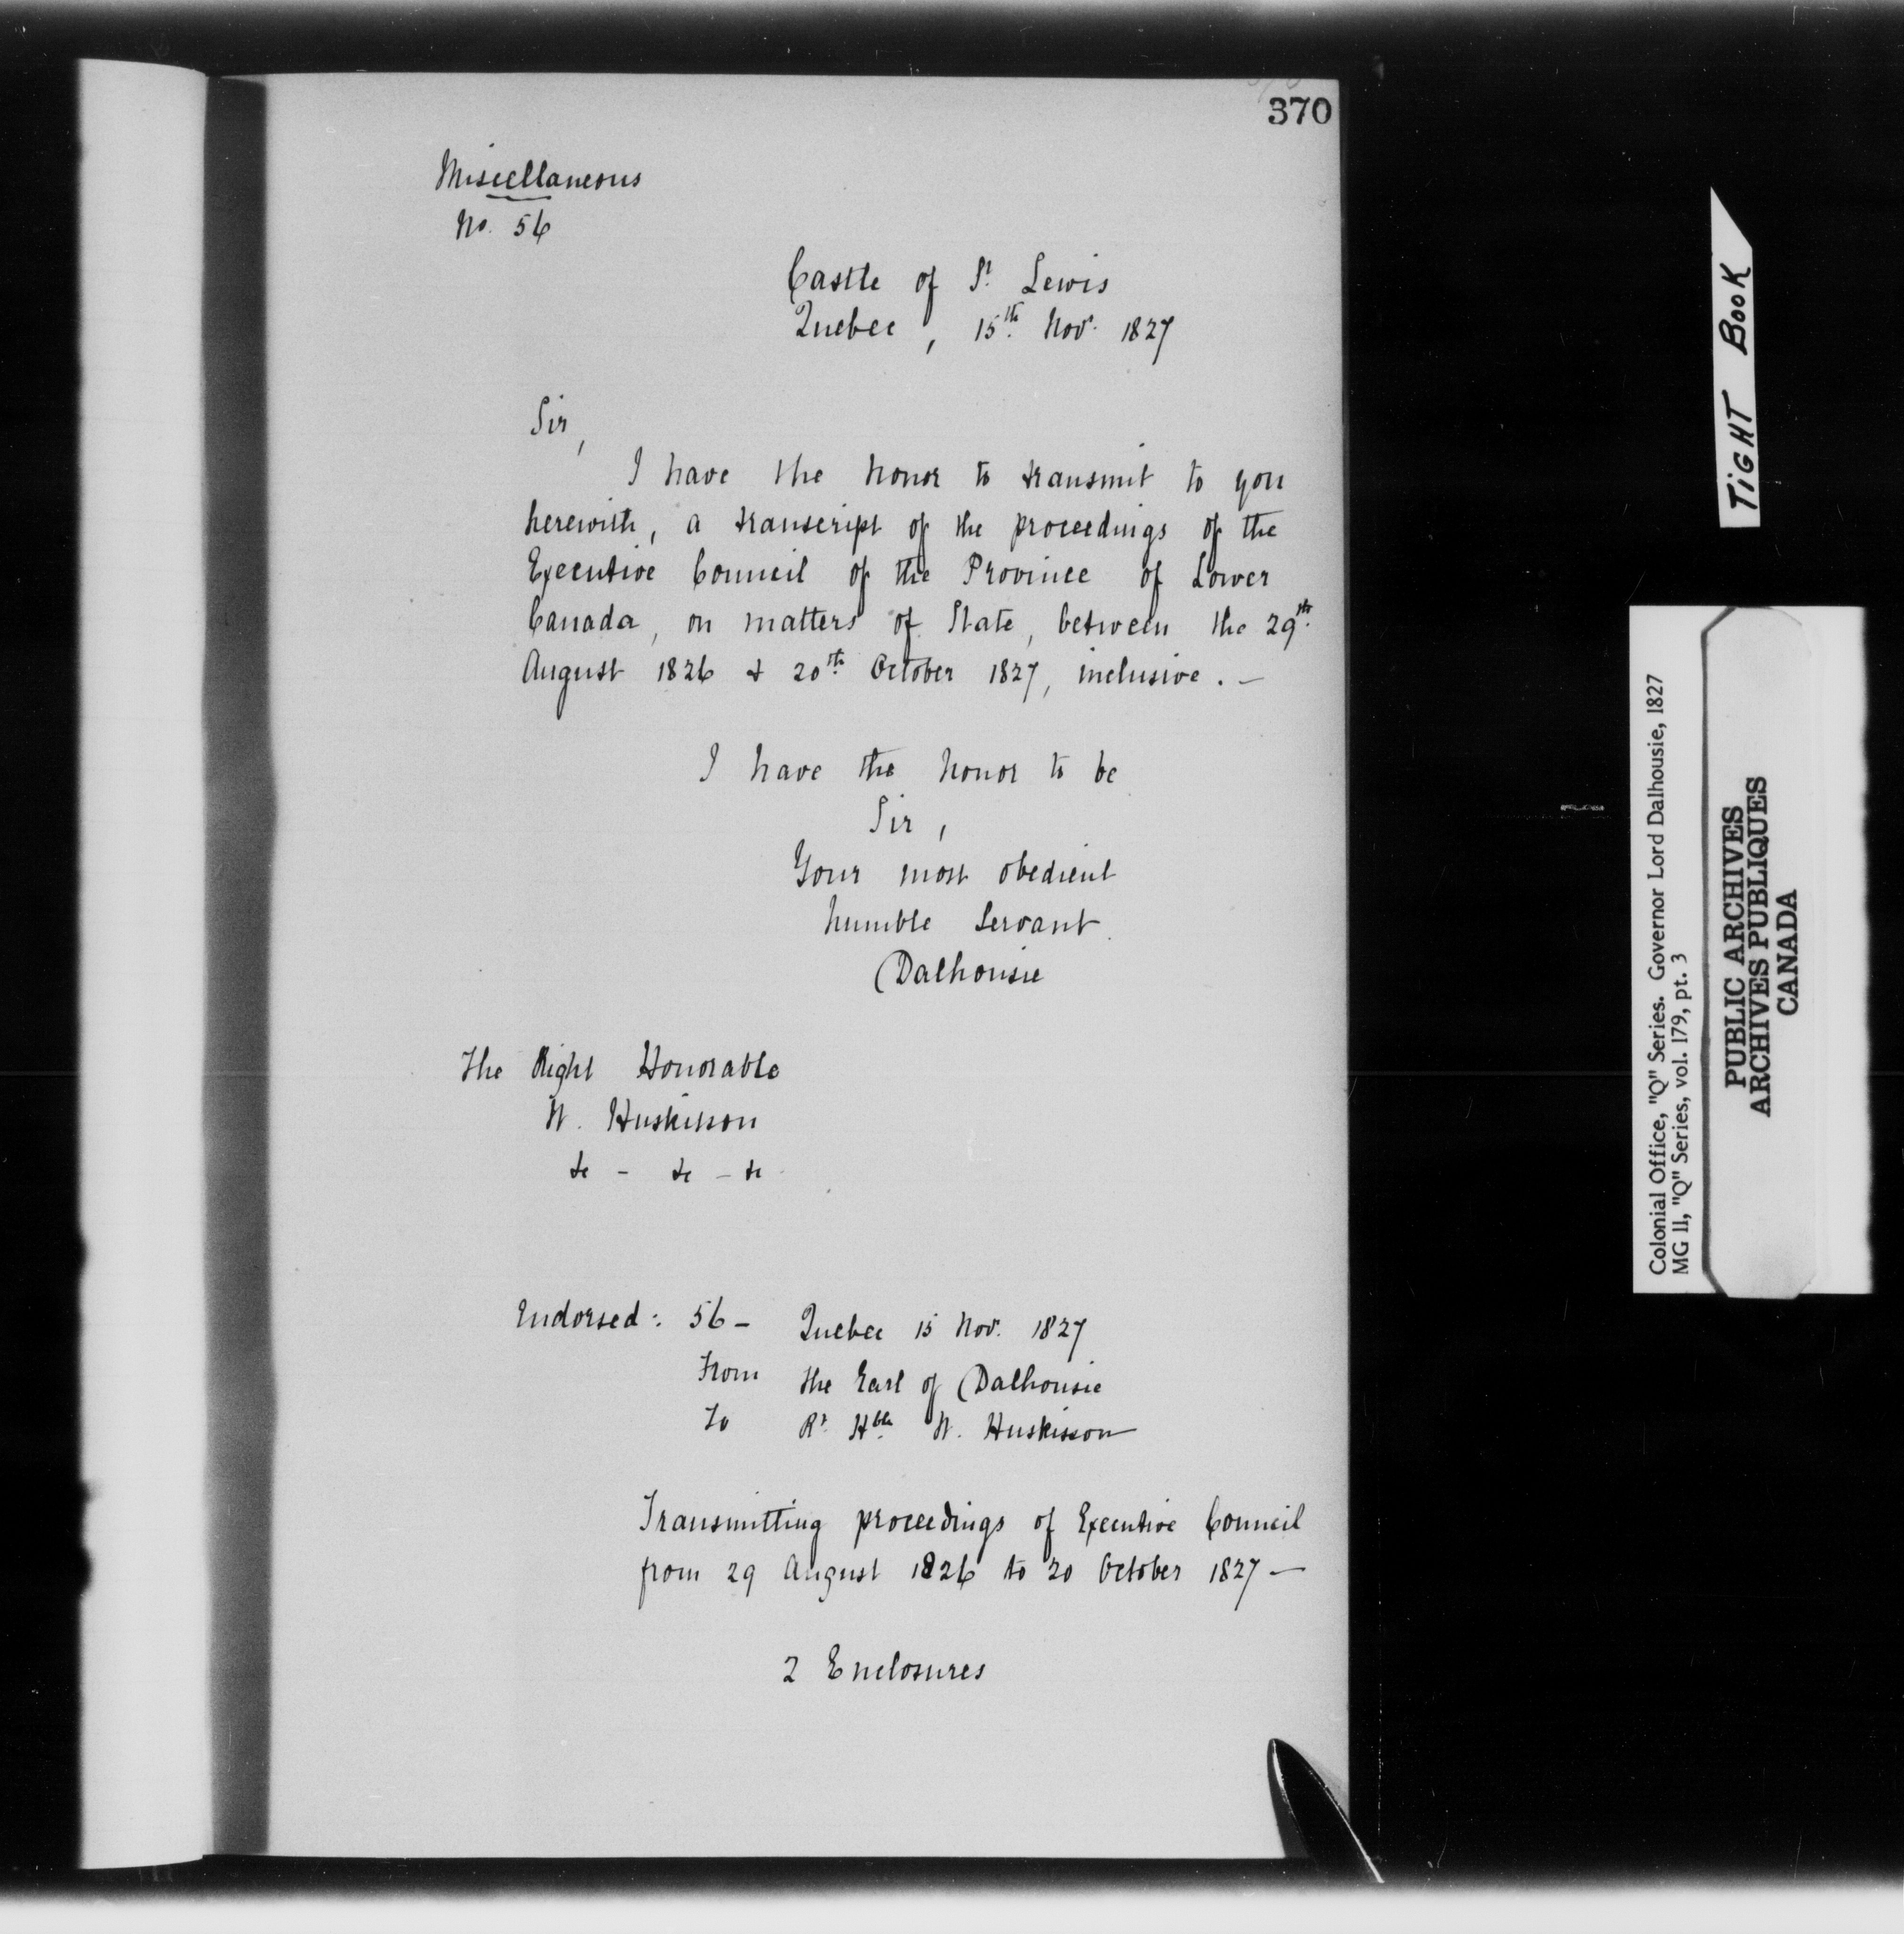 370
Miscellaneous
No. 56
Castle of St. Lewis
Quebec, 15th. Nov. 1827
Sir,
I have the honor to transmit to you
herewith, a transcript of the proceedings of the
Executive Council of the Province of Lower
Canada, on matters of State, between the 29th.
August 1826 & 20th. October 1827, inclusive. —
I have the honor to be
Sir,
Your most obedient
humble Servant
Dalhousie
The Right Honorable
W. Huskisson
&c - &c - &c
Endorsed: 56 - Quebec 15 Nov. 1827
From the Earl of Dalhousie
To Rt. Hble. W. Huskisson
Transmitting proceedings of Executive Council
from 29 August 1826 to 20 October 1827 —
2 Enclosures
TiGHT BOOK
Colonial Office, "Q" Series. Governor Lord Dalhousie, 1827
MG 11, "Q" Series, vol. 179, pt. 3
PUBLIC ARCHIVES
ARCHIVES PUBLIQUES
CANADA